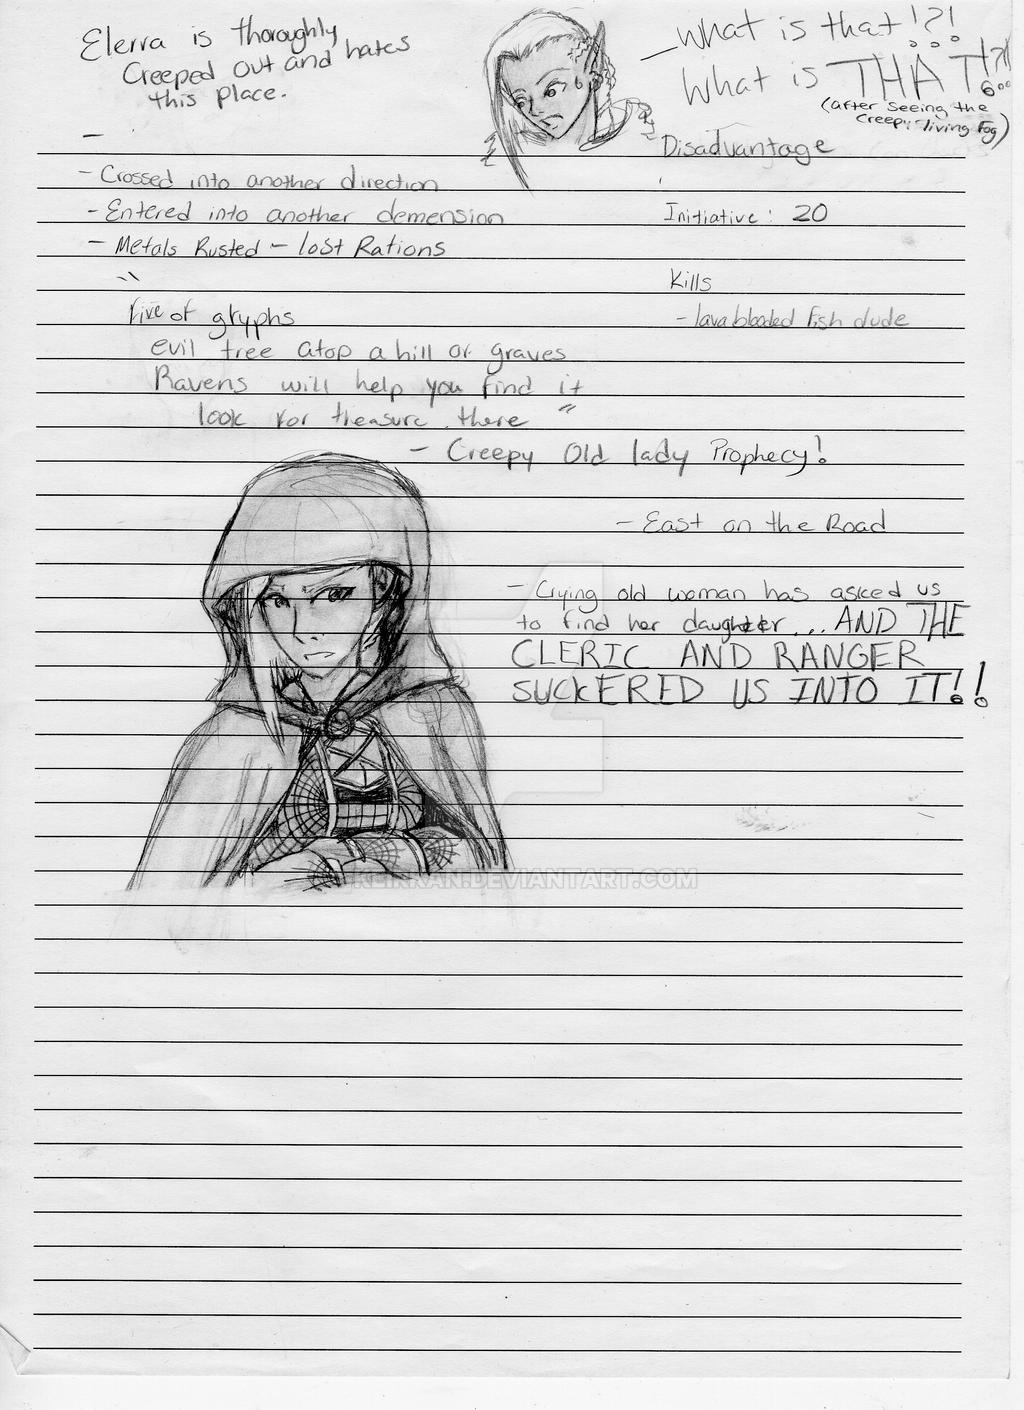 Elerra is thoroughly
Creeped out and hates
this place.
- What is that!?!
What is THAT!?!
(after seeing the
creepy living fog)
Disadvantage
-
- Crossed into another direction
- Entered into another demension
- Metals Rusted - lost Rations
Initiative: 20
Kills
- lava blooded fish dude
"
Five of glyphs
evil tree atop a hill of graves
Ravens will help you find it
look for treasure there "
- Creepy Old lady Prophecy!
- East on the Road
- Crying old woman has asked us
to find her daughter... AND THE
CLERIC AND RANGER
SUCKERED US INTO IT!!
KEIRRAN.DEVIANTART.COM